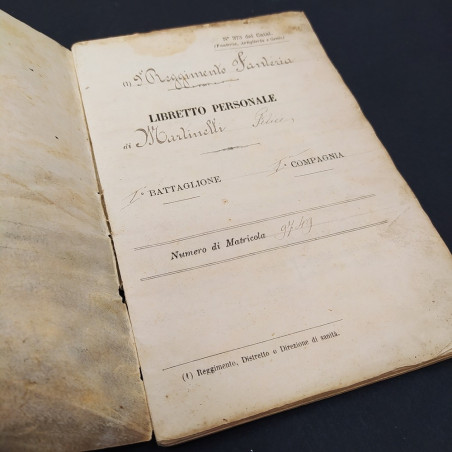 Nº 873 del Catal.
(Fanteria, Artiglieria e Genio)
(1) Reggimento Fanteria
LIBRETTO PERSONALE
di Martinelli
BATTAGLIONE COMPAGNIA
Numero di Matricola
(1) Reggimento, Distretto o Direzione di sanità.